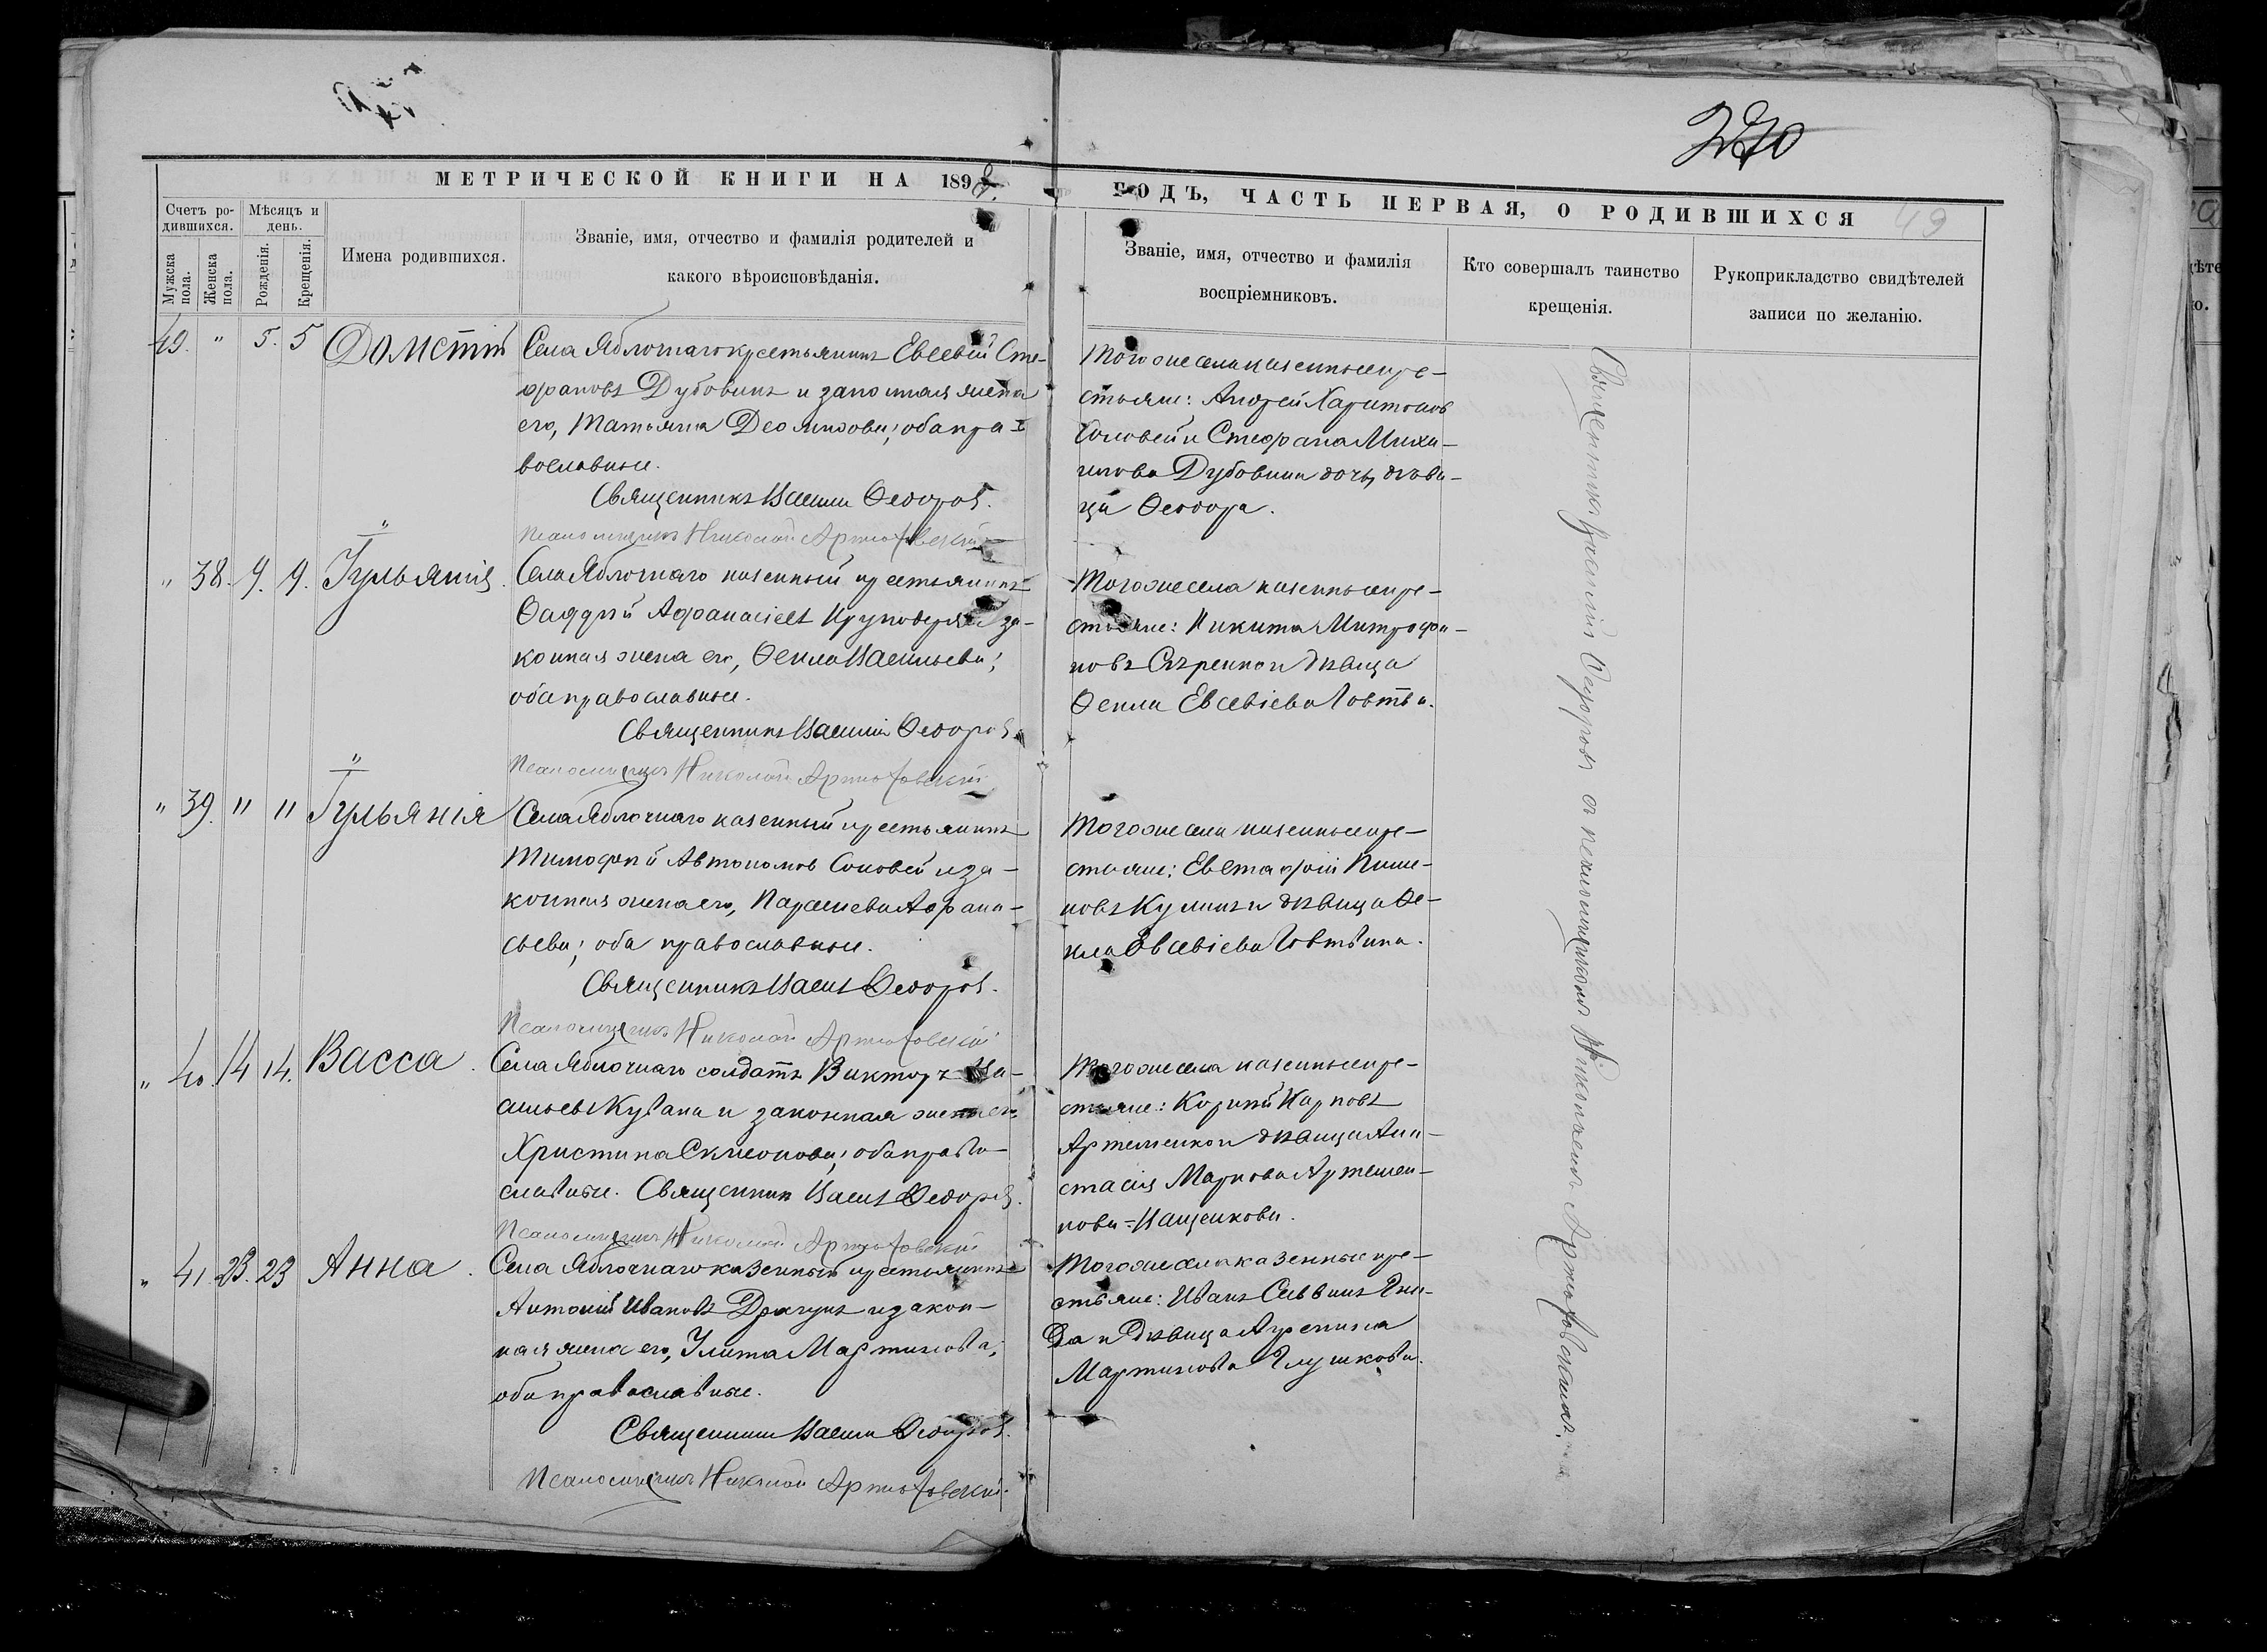 270
МЕТРИЧЕСКОЙ КНИГИ НА 189
ГОДЪ, ЧАСТЬ ПЕРВАЯ, О РОДИВШИХСЯ
49
Счетъ ро-
дившихся.
Мѣсяцъ и
день.
Мужска
пола.
Женска
пола.
Рожденія.
Крещенія.
Имена родившихся.
Званіе, имя, отчество и фамилія родителей и
какого вѣроисповѣданія.
Званіе, имя, отчество и фамилія
воспріемниковъ.
Кто совершалъ таинство
крещенія.
Рукоприкладство свидѣтелей
записи по желанію.
49. " 5. 5 Дометій
Села Яблочнаго крестьянинъ Евсевій Сте-
фановъ Дубовикъ и законная жена
его, Татьяна Деомидова; оба пра-
вославные.
Священникъ Василій Ѳеодоровъ.
Псаломщикъ Николай Артюховскій
Того же села казенные кре-
стьяне: Андрей Харитоновъ
Соловей и Стефана Михаи-
лова Дубовика дочь, дѣви-
ца Ѳеодора.
" 38. 9. 9. Іульянія.
Села Яблочнаго казенный крестьянинъ
Ѳаддей Афанасіевъ и за-
конная жена его, Ѳекла Васильева;
оба православные.
Священникъ Василій Ѳеодоровъ.
Псаломщикъ Николай Артюховскій
Того же села казенные кре-
стьяне: Никита Митрофа-
новъ и дѣвица
Ѳекла Евсевіева
" 39. " " Іульянія
Села Яблочнаго казенный крестьянинъ
Тимофей Автономовъ Соловей и за-
конная жена его, Параскева Афана-
сьева; оба православные.
Священникъ Василій Ѳеодоровъ.
Псаломщикъ Николай Артюховскій
Того же села казенные кре-
стьяне: Евстафій
и дѣвица Ѳе-
кла Евсевіева
" 40. 14 14. Васса.
Села Яблочнаго солдатъ Викторъ Ва-
сильевъ и законная жена его
Христина Симеонова; оба право-
славные. Священникъ Василій Ѳеодоровъ.
Псаломщикъ Николай Артюховскій
Того же села казенные кре-
стьяне: Карповъ
Артеменко и дѣвица Ана-
стасія Маркова Артемен-
кова=Иащенкова.
" 41. 23. 23 Анна.
Села Яблочнаго казенный крестьянинъ
Антоній Ивановъ Драгунъ и закон-
ная жена его, Улита Мартинова;
оба православные.
Священникъ Василій Ѳеодоровъ.
Псаломщикъ Николай Артюховскій.
Того же села казенные кре-
стьяне: Иванъ Саввинъ Гни-
да и дѣвица Агрепина
Мартинова Глушкова.
Священникъ Василій Ѳеодоровъ съ псаломщикомъ Николаемъ Артюховскимъ.